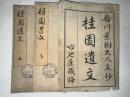 香川景樹大人文抄
桂園遺文
桂園遺文 下
桂園遺文 上